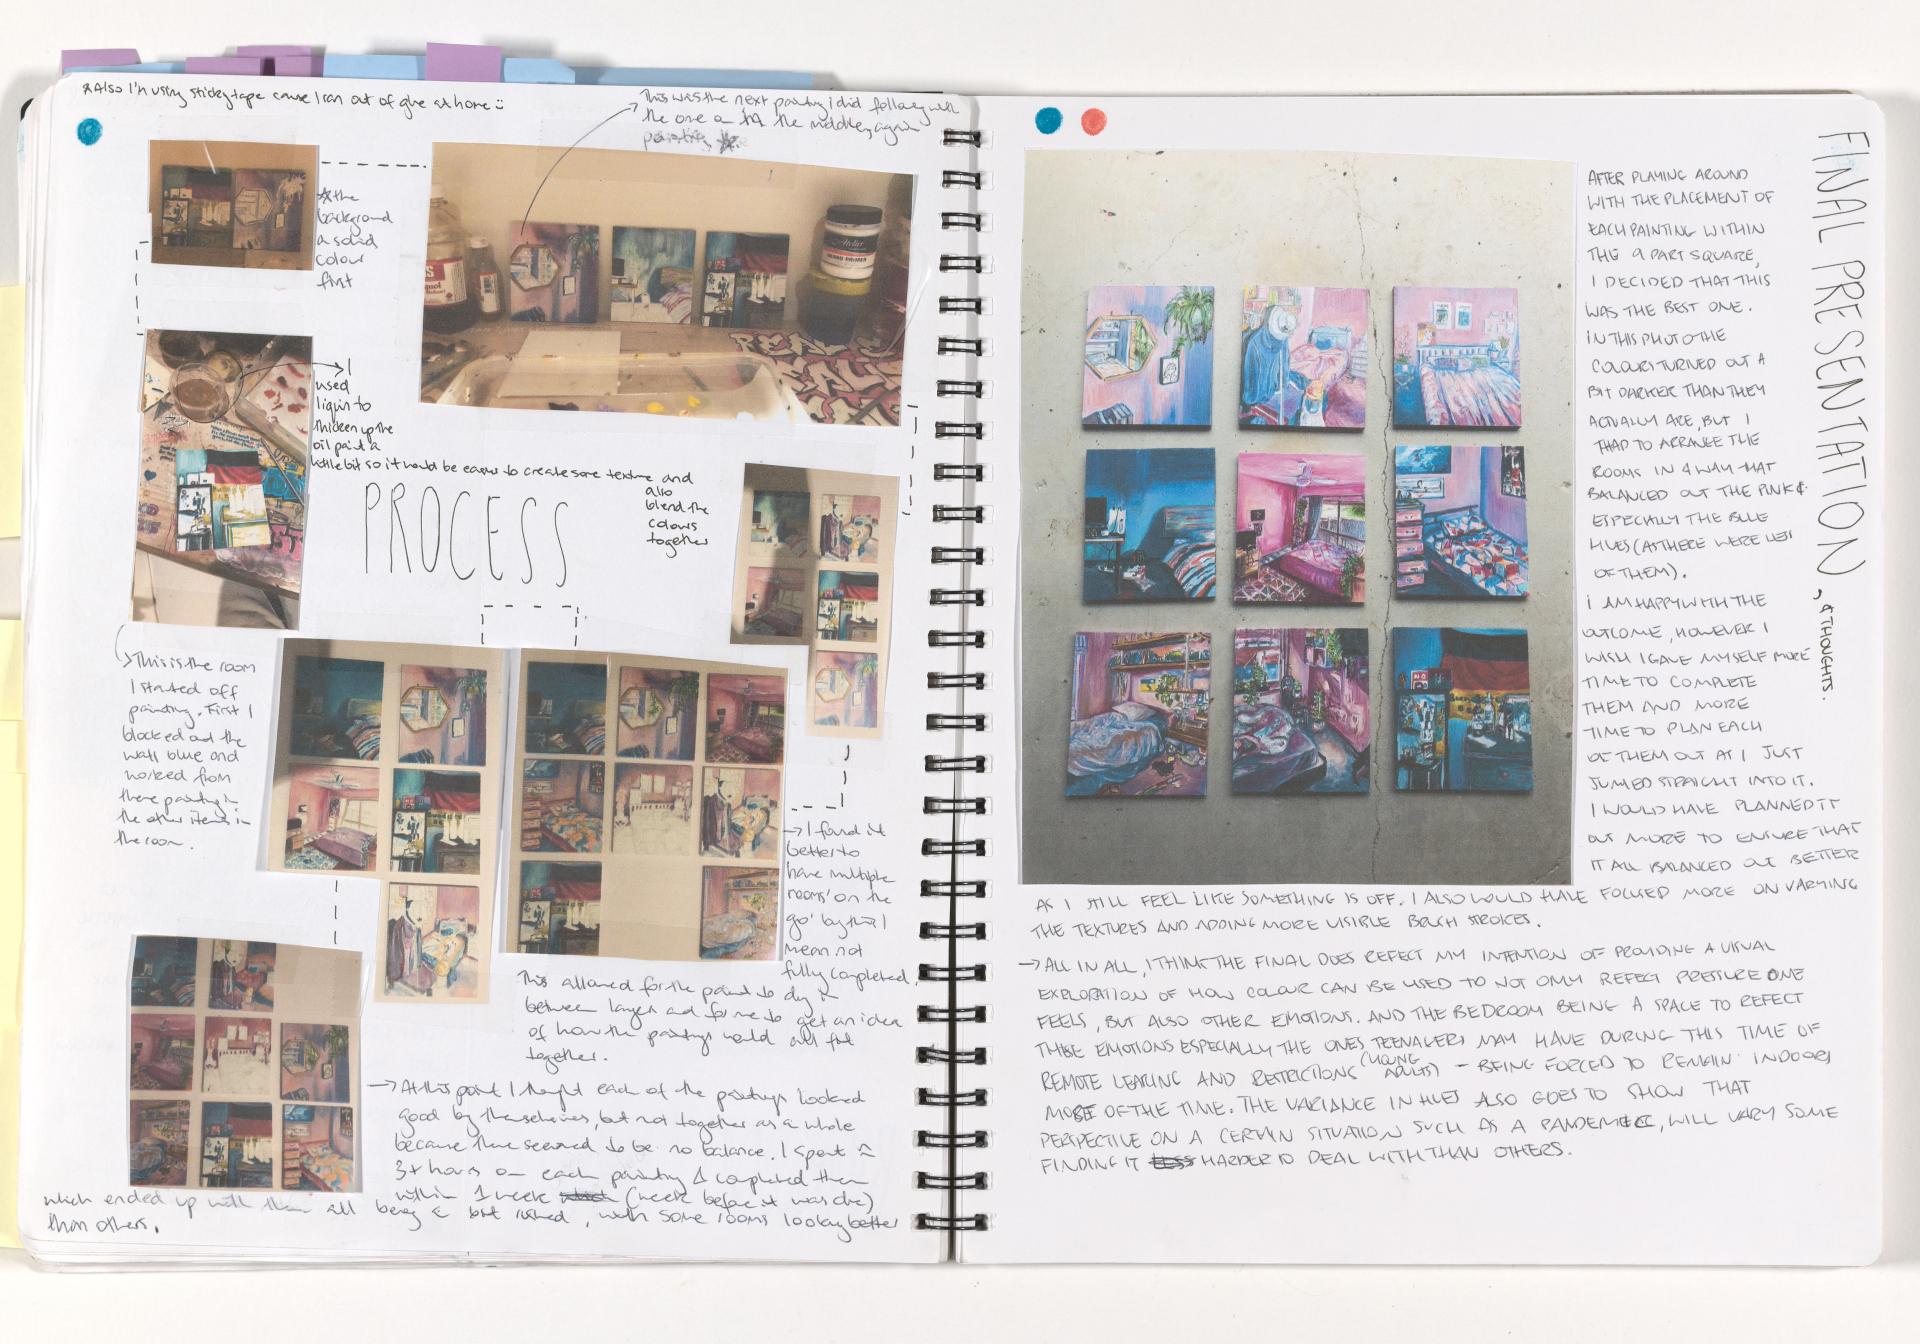 *Also I'm using stickytape cause I ran out of glue at home :)
This was the next painting I did following with
the one on in the middle, again
painting
*the
background
a solid
colour
first
→ I
used
liqin to
thicken up the
oil paint a
little bit so it would be easier to create some texture and
also
blend the
colours
together
PROCESS
→ This is the room
I started off
painting. First I
blocked out the
wall blue and
worked from
there painting in
the other items in
the room.
→ I found it
better to
have multiple
rooms 'on the
go' by this I
mean not
fully completed.
This allowed for the paint to dry in
between layers and for me to get an idea
of how the paintings would all fit
together.
→ At this point I thought each of the paintings looked
good by themselves, but not together as a whole
because there seemed to be no balance. I spent ≈
3+ hours on each painting & completed them
within 1 week which (week before it was due)
which ended up with them all being a bit rushed, with some rooms looking better
than others.
FINAL PRESENTATION, & THOUGHTS.
AFTER PLAYING AROUND
WITH THE PLACEMENT OF
EACH PAINTING WITHIN
THE 9 PART SQUARE,
I DECIDED THAT THIS
WAS THE BEST ONE.
IN THIS PHOTO THE
COLOURS TURNED OUT A
BIT DARKER THAN THEY
ACTUALLY ARE, BUT I
THAD TO ARRANGE THE
ROOMS IN A WAY THAT
BALANCED OUT THE PINK &
ESPECIALLY THE BLUE
HUES (AS THERE WERE LESS
OF THEM).
I AM HAPPY WITH THE
OUTCOME, HOWEVER I
WISH I GAVE MYSELF MORE
TIME TO COMPLETE
THEM AND MORE
TIME TO PLAN EACH
OF THEM OUT AS I JUST
JUMED STRAIGHT INTO IT.
I WOULD HAVE PLANNED IT
OUT MORE TO ENSURE THAT
IT ALL BALANCED OUT BETTER
AS I STILL FEEL LIKE SOMETHING IS OFF. I ALSO WOULD HAVE FOCUSED MORE ON VARYING
THE TEXTURES AND ADDING MORE VISIBLE BRUSH STROKES.
→ ALL IN ALL, I THINK THE FINAL DOES REFECT MY INTENTION OF PROVIDING A VISUAL
EXPLORATION OF HOW COLOUR CAN BE USED TO NOT ONLY REFECT PRESSURE ONE
FEELS, BUT ALSO OTHER EMOTIONS. AND THE BEDROOM BEING A SPACE TO REFECT
THESE EMOTIONS ESPECIALLY THE ONES TEENAGERS MAY HAVE DURING THIS TIME OF
REMOTE LEARING AND RESTRICTIONS (YOUNG ADULTS) - BEING FORCED TO REMAIN INDOORS
MOST OF THE TIME. THE VARIANCE IN HUES ALSO GOES TO SHOW THAT
PERSPECTIVE ON A CERTAIN SITUATION SUCH AS A PANDEMIC, WILL VARY SOME
FINDING IT LESS HARDER TO DEAL WITH THAN OTHERS.